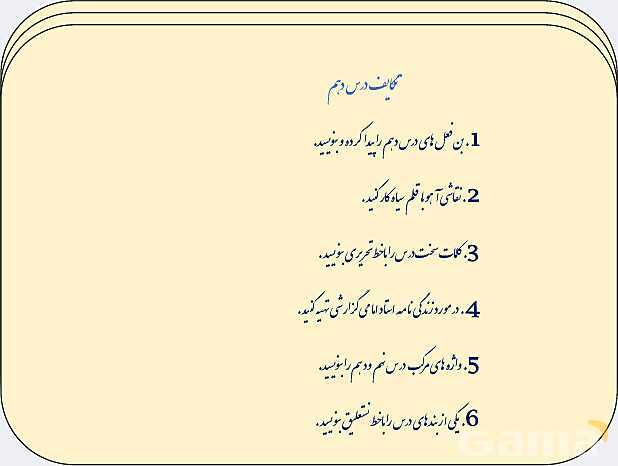 تکالیف درس دهم
1. بن فعل های درس دهم را پیدا کرده و بنویسید.
2. نقاشی آهو با قلم سیاه کار کنید.
3. کلمات سخت درس را باخط تحریری بنویسید.
4. در مورد زندگی نامه استاد امامی گزارشی تهیه کنید.
5. واژه های مرکب درس نهم و دهم را بنویسید.
6. یکی از بندهای درس را باخط نستعلیق بنویسید.
Gama